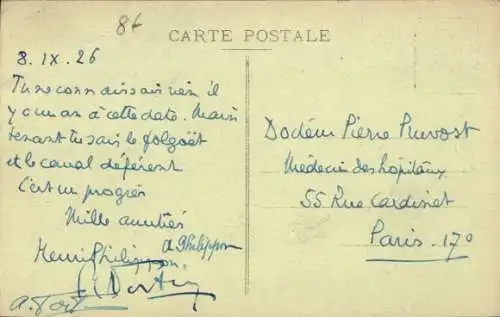 86
CARTE POSTALE
8. IX. 26
Tu ne connaissais rien il
y a un an à cette date. Main
tenant tu sais le folgoët
et le canal déférent
C'est un progrès
Mille amitiés
A Philippon
Henri Philippon
Docteur Pierre Pruvost
Médecin des hôpitaux
55 Rue Cardinet
Paris. 17°